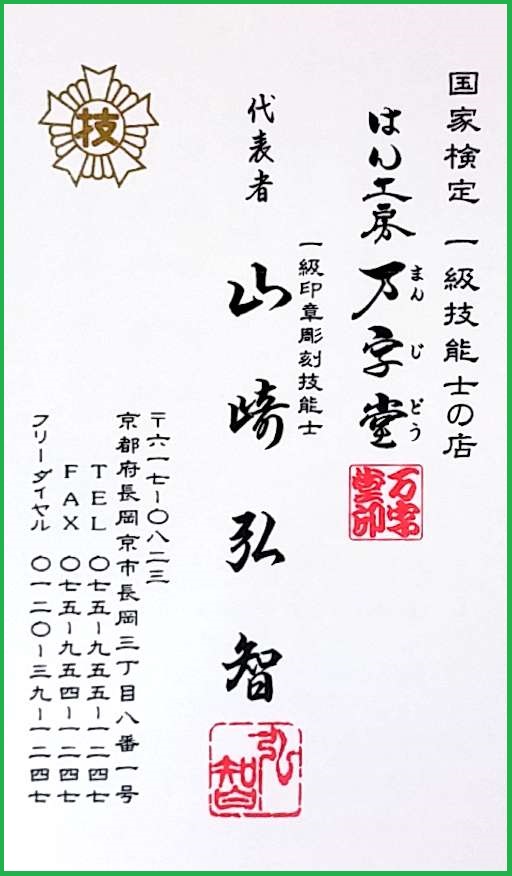 国家検定 一級技能士の店
はん工房 万字堂
まんじどう
万字堂印
一級印章彫刻技能士
代表者 山崎弘智
弘智
技
〒六一七ー〇八二三
京都府長岡京市長岡三丁目八番一号
TEL 〇七五ー九五五ー一二四七
FAX 〇七五ー九五四ー一二四七
フリーダイヤル 〇一二〇ー三九ー一二四七